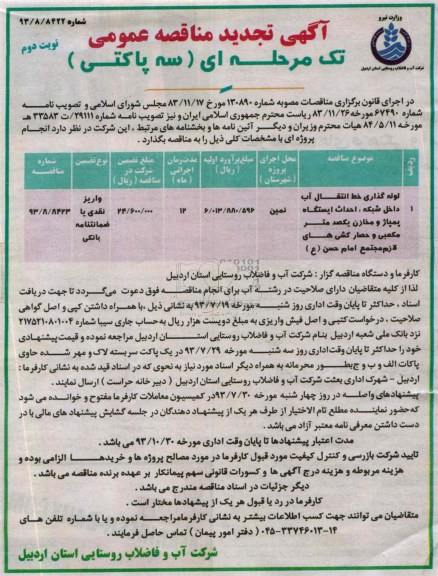 شماره ۹۳/۸/۸۴۲۲
وزارت نیرو
شرکت آب و فاضلاب روستایی استان اردبیل
آگهی تجدید مناقصه عمومی
نوبت دوم
تک مرحله ای (سه پاکتی)
در اجرای قانون برگزاری مناقصات مصوبه شماره ۱۳۰۸۹۰ مورخ ۸۳/۱۱/۱۷ مجلس شورای اسلامی و تصویب نامه
شماره ۶۷۴۹۰ مورخ ۸۳/۱۱/۲۶ ریاست محترم جمهوری اسلامی ایران و نیز تصویب نامه شماره ۲۹۱۱۱/ت ۳۳۵۸۳ هـ
مورخ ۸۴/۵/۱۱ هیات محترم وزیران و دیگر آئین نامه ها و بخشنامه های مرتبط ، این شرکت در نظر دارد انجام
پروژه ای با مشخصات کلی ذیل را به مناقصه بگذارد .
ردیف
موضوع مناقصه
محل اجرای پروژه (شهرستان)
مبلغ برآورد اولیه (ریال)
مدت زمان اجرائی (ماه)
مبلغ تضمین شرکت در مناقصه (ریال)
نوع تضمین
شماره مناقصه
۱
لوله گذاری خط انتقال آب
داخل شبکه ، احداث ایستگاه
پمپاژ و مخازن یکصد متر
مکعبی و حصار کشی های
لازم مجتمع امام حسن (ع)
نمین
۶/۰۱۳/۸۸۰/۵۹۶
۱۲
۲۴/۶۰۰/۰۰۰
واریز نقدی یا ضمانتنامه بانکی
۹۳/۸/۸۴۲۳
کارفرما و دستگاه مناقصه گزار : شرکت آب و فاضلاب روستایی استان اردبیل
لذا از کلیه متقاضیان دارای صلاحیت در رشته آب برای انجام مناقصه فوق دعوت می گردد تا جهت دریافت
اسناد ، حداکثر تا پایان وقت اداری روز شنبه مورخه ۹۳/۷/۱۹ به نشانی ذیل ، با همراه داشتن کپی و اصل گواهی
صلاحیت ، درخواست کتبی و اصل فیش واریزی به مبلغ دویست هزار ریال به حساب جاری سیبا شماره ۲۱۷۵۲۱۰۸۰۱۰۰۴
نزد بانک ملی شعبه اردبیل بنام شرکت آب و فاضلاب روستایی استان اردبیل مراجعه نموده و قیمت پیشنهادی
خود را حداکثر تا پایان وقت اداری روز سه شنبه مورخه ۹۳/۷/۲۹ در یک پاکت سر بسته لاک و مهر شده حاوی
پاکات الف و ب و ج بطور محرمانه به همراه دیگر اسناد مورد نیاز به نحوی که در اسناد قید شده به نشانی کارفرما :
اردبیل – شهرک اداری بعثت شرکت آب و فاضلاب روستایی استان اردبیل ( دبیر خانه حراست ) ارسال نمایند .
پیشنهادهای واصله در روز چهار شنبه مورخه ۹۳/۷/۳۰ در کمیسیون معاملات کارفرما مفتوح و خوانده می شود
که حضور نماینده مطلع تام الاختیار از طرف هر یک از پیشنهاد دهندگان در جلسه گشایش پیشنهاد های مالی با در
دست داشتن معرفی نامه معتبر آزاد می باشد .
مدت اعتبار پیشنهادها تا پایان وقت اداری مورخه ۹۳/۱۰/۳۰ می باشد .
تایید شرکت بازرسی و کنترل کیفیت مورد قبول کارفرما در مورد مصالح پروژه ها و خریدها الزامی بوده و
هزینه مربوطه و هزینه درج آگهی ها و کسورات قانونی سهم پیمانکار بر عهده برنده مناقصه می باشد .
دیگر جزئیات در اسناد مناقصه مندرج می باشد .
کارفرما در رد یا قبول هر یک از پیشنهادها مختار است .
متقاضیان می توانند جهت کسب اطلاعات بیشتر به نشانی کارفرما مراجعه نموده و یا با شماره تلفن های
۰۴۵-۳۳۷۴۶۰۱۳-۱۴ ( دفتر امور پیمان ) تماس حاصل فرمایند .
شرکت آب و فاضلاب روستایی استان اردبیل